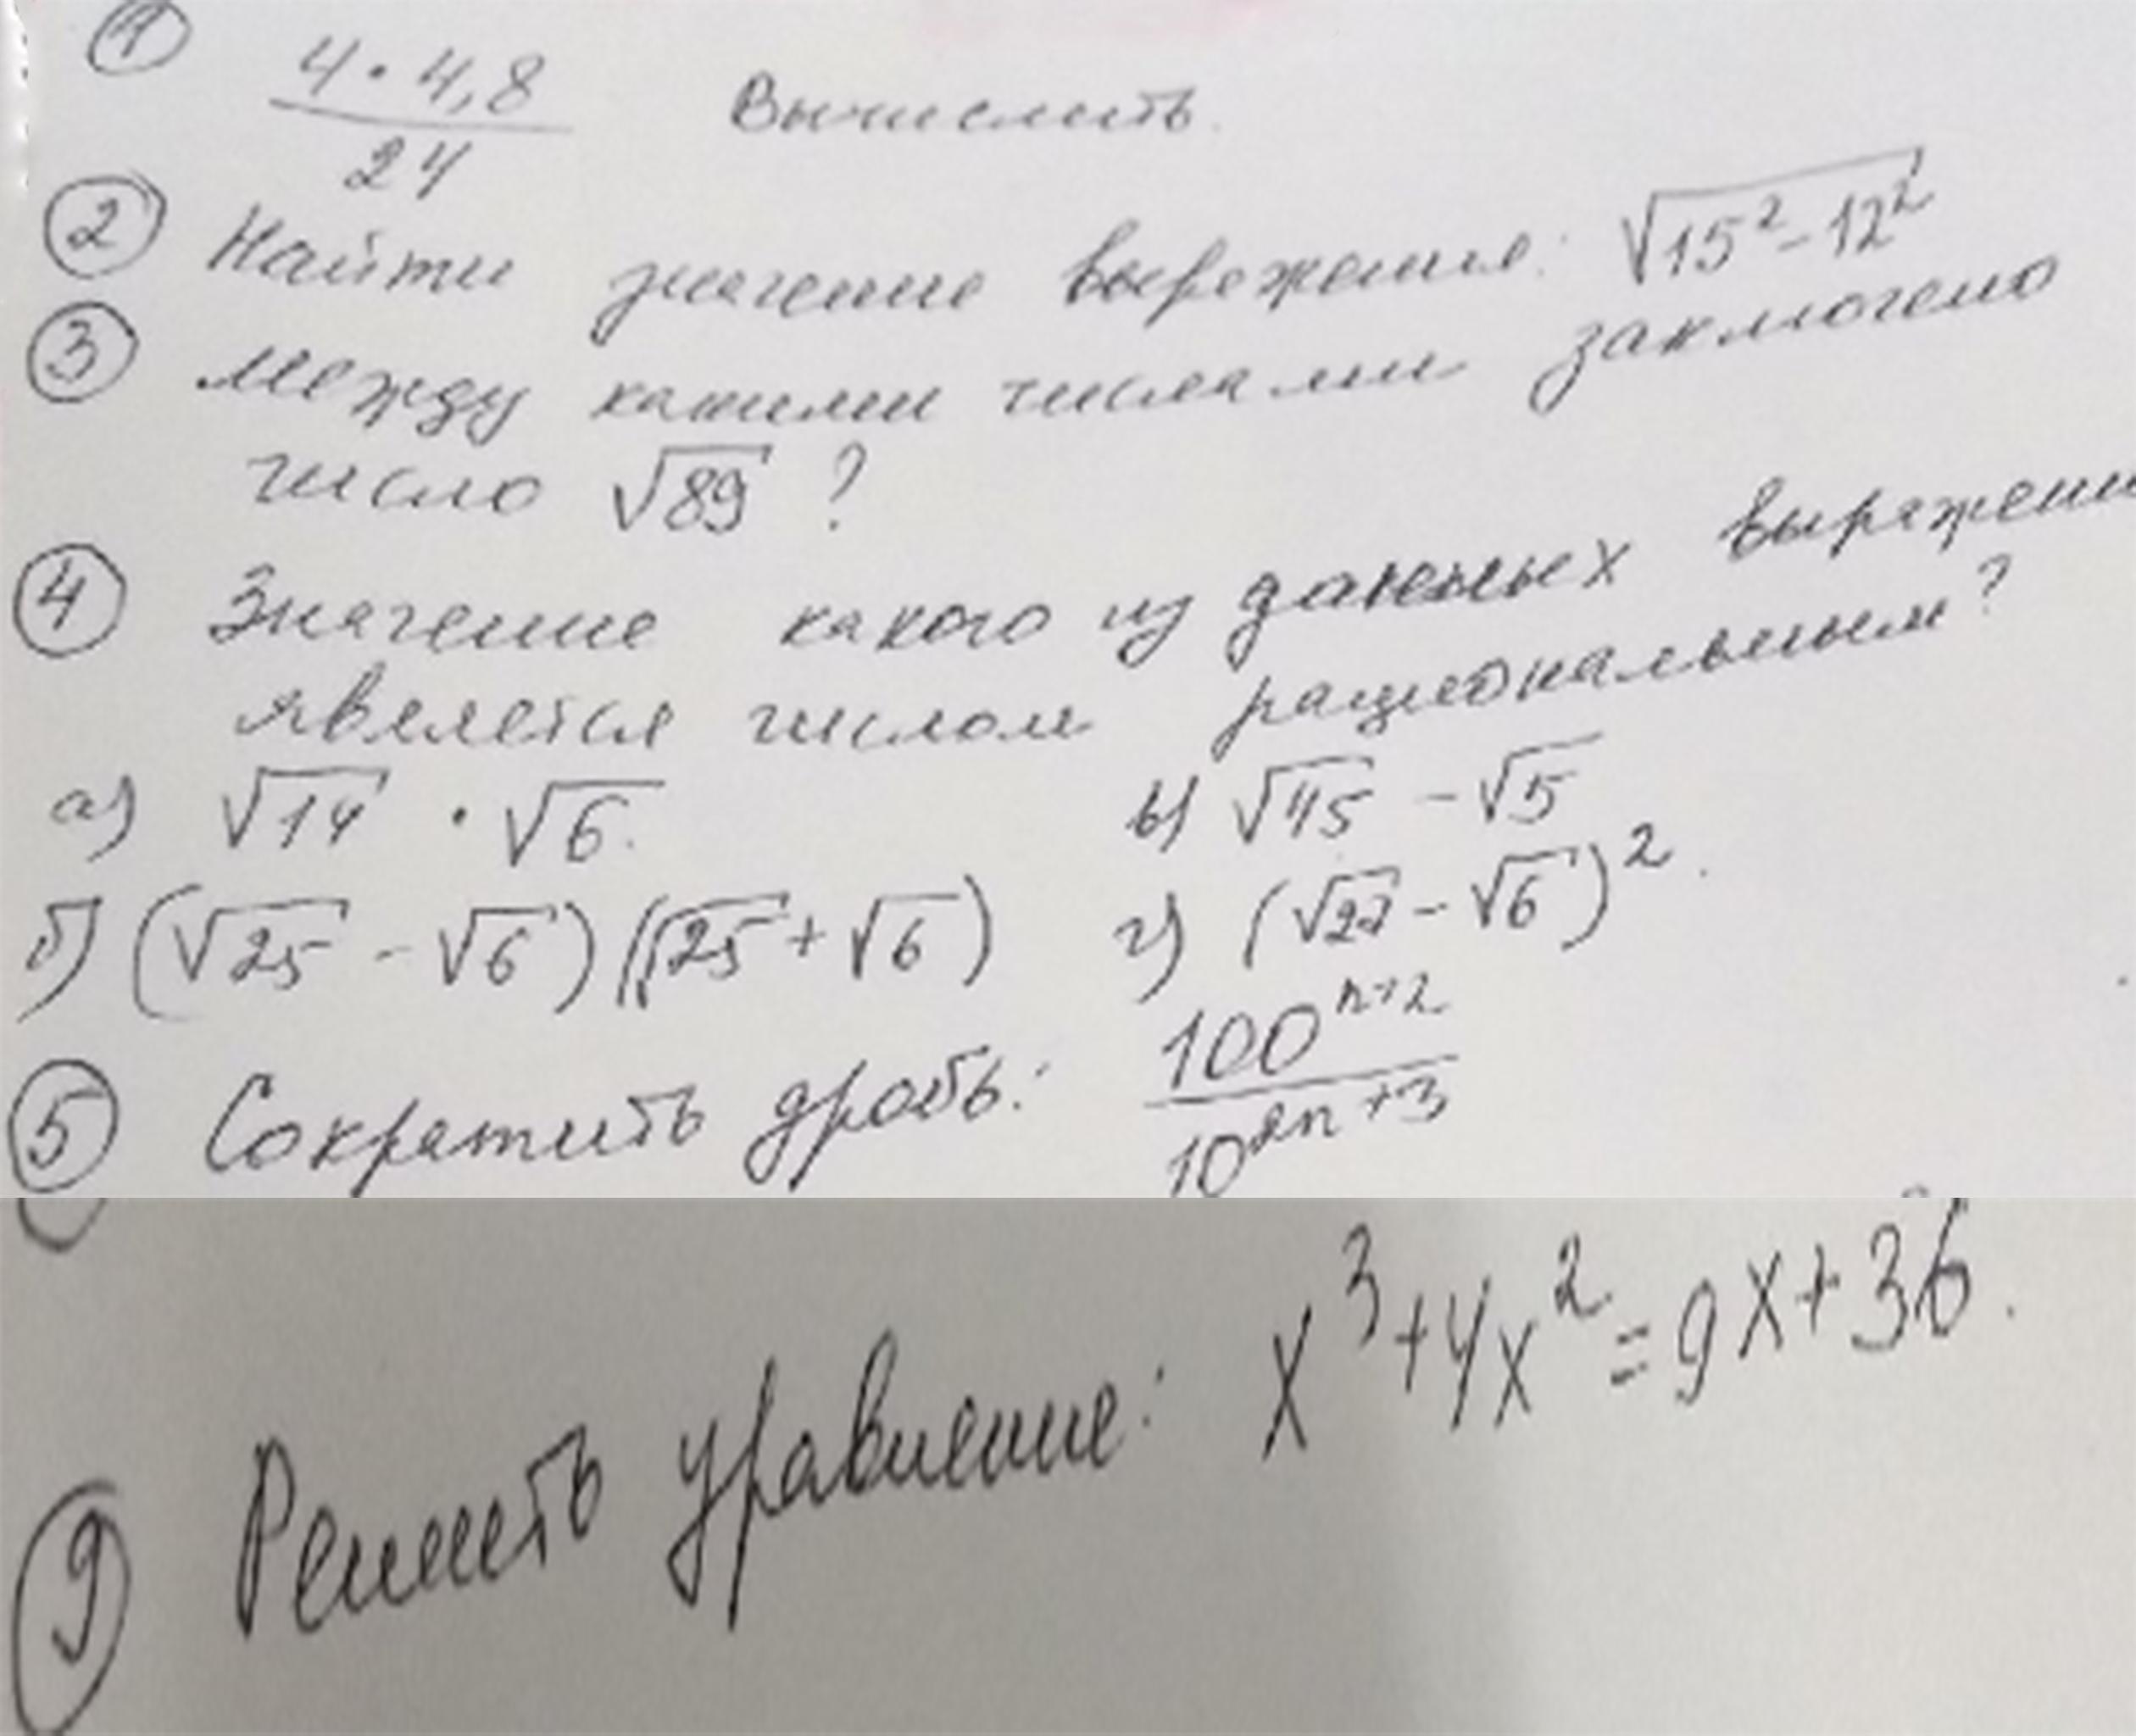 ① 4 · 4,8 / 24 Вычислить.
② Найти значение выражения: √(15² - 12²)
③ Между какими числами заключено
число √89 ?
④ Значение какого из данных выражени
является числом рациональным?
а) √14 · √6. в) √45 - √5
б) (√25 - √6)(√25 + √6) г) (√27 - √6)².
⑤ Сократить дробь: 100ⁿ⁺² / 10²ⁿ⁺³
⑨ Решить уравнение: x³ + 4x² = 9x + 36.